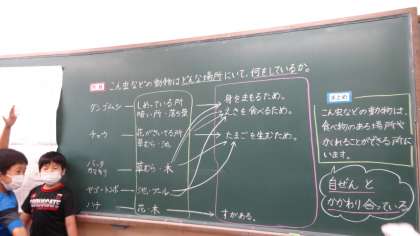 こん虫などの動物はどんな場所にいて、何をしているか。
ダンゴムシ
しめっている所
暗い所・落ち葉
チョウ
花がさいてる所
草むら・池
バッタ
カマキリ
草むら・木
ヤゴ→トンボ
池、プール
ハチ
花・木
身をまもるため。
えさを食べるため。
たまごを生むため。
すがある。
まとめ
こん虫などの動物は、
食べ物のある場所や
かくれることができる所に
います。
自ぜんと
かかわり合っている